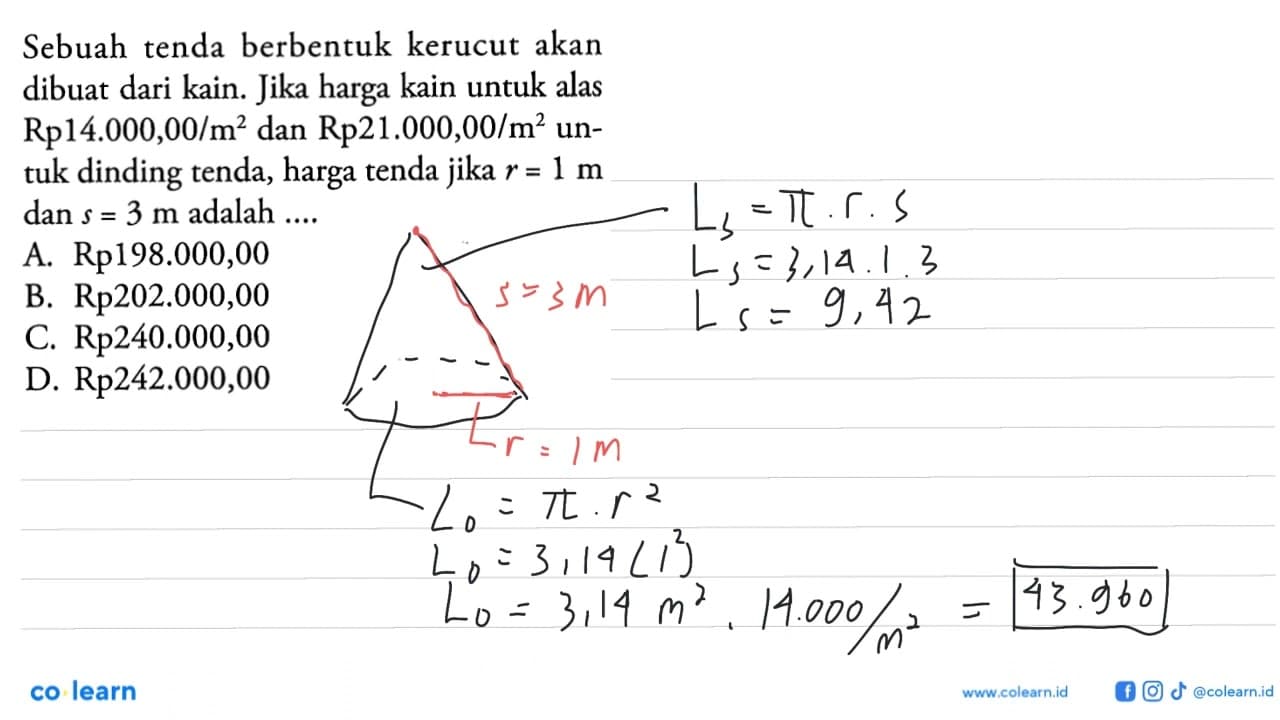 Sebuah tenda berbentuk kerucut akan
dibuat dari kain. Jika harga kain untuk alas
Rp14.000,00/m² dan Rp21.000,00/m² un-
tuk dinding tenda, harga tenda jika r = 1 m
dan s = 3 m adalah ....
A. Rp198.000,00
B. Rp202.000,00
C. Rp240.000,00
D. Rp242.000,00
Ls = π . r . s
Ls = 3,14 . 1 . 3
Ls = 9,42
s = 3 m
r = 1 m
L0 = π . r²
L0 = 3,14 (1²)
L0 = 3,14 m² . 14.000/m² = 43.960
co learn
www.colearn.id
@colearn.id